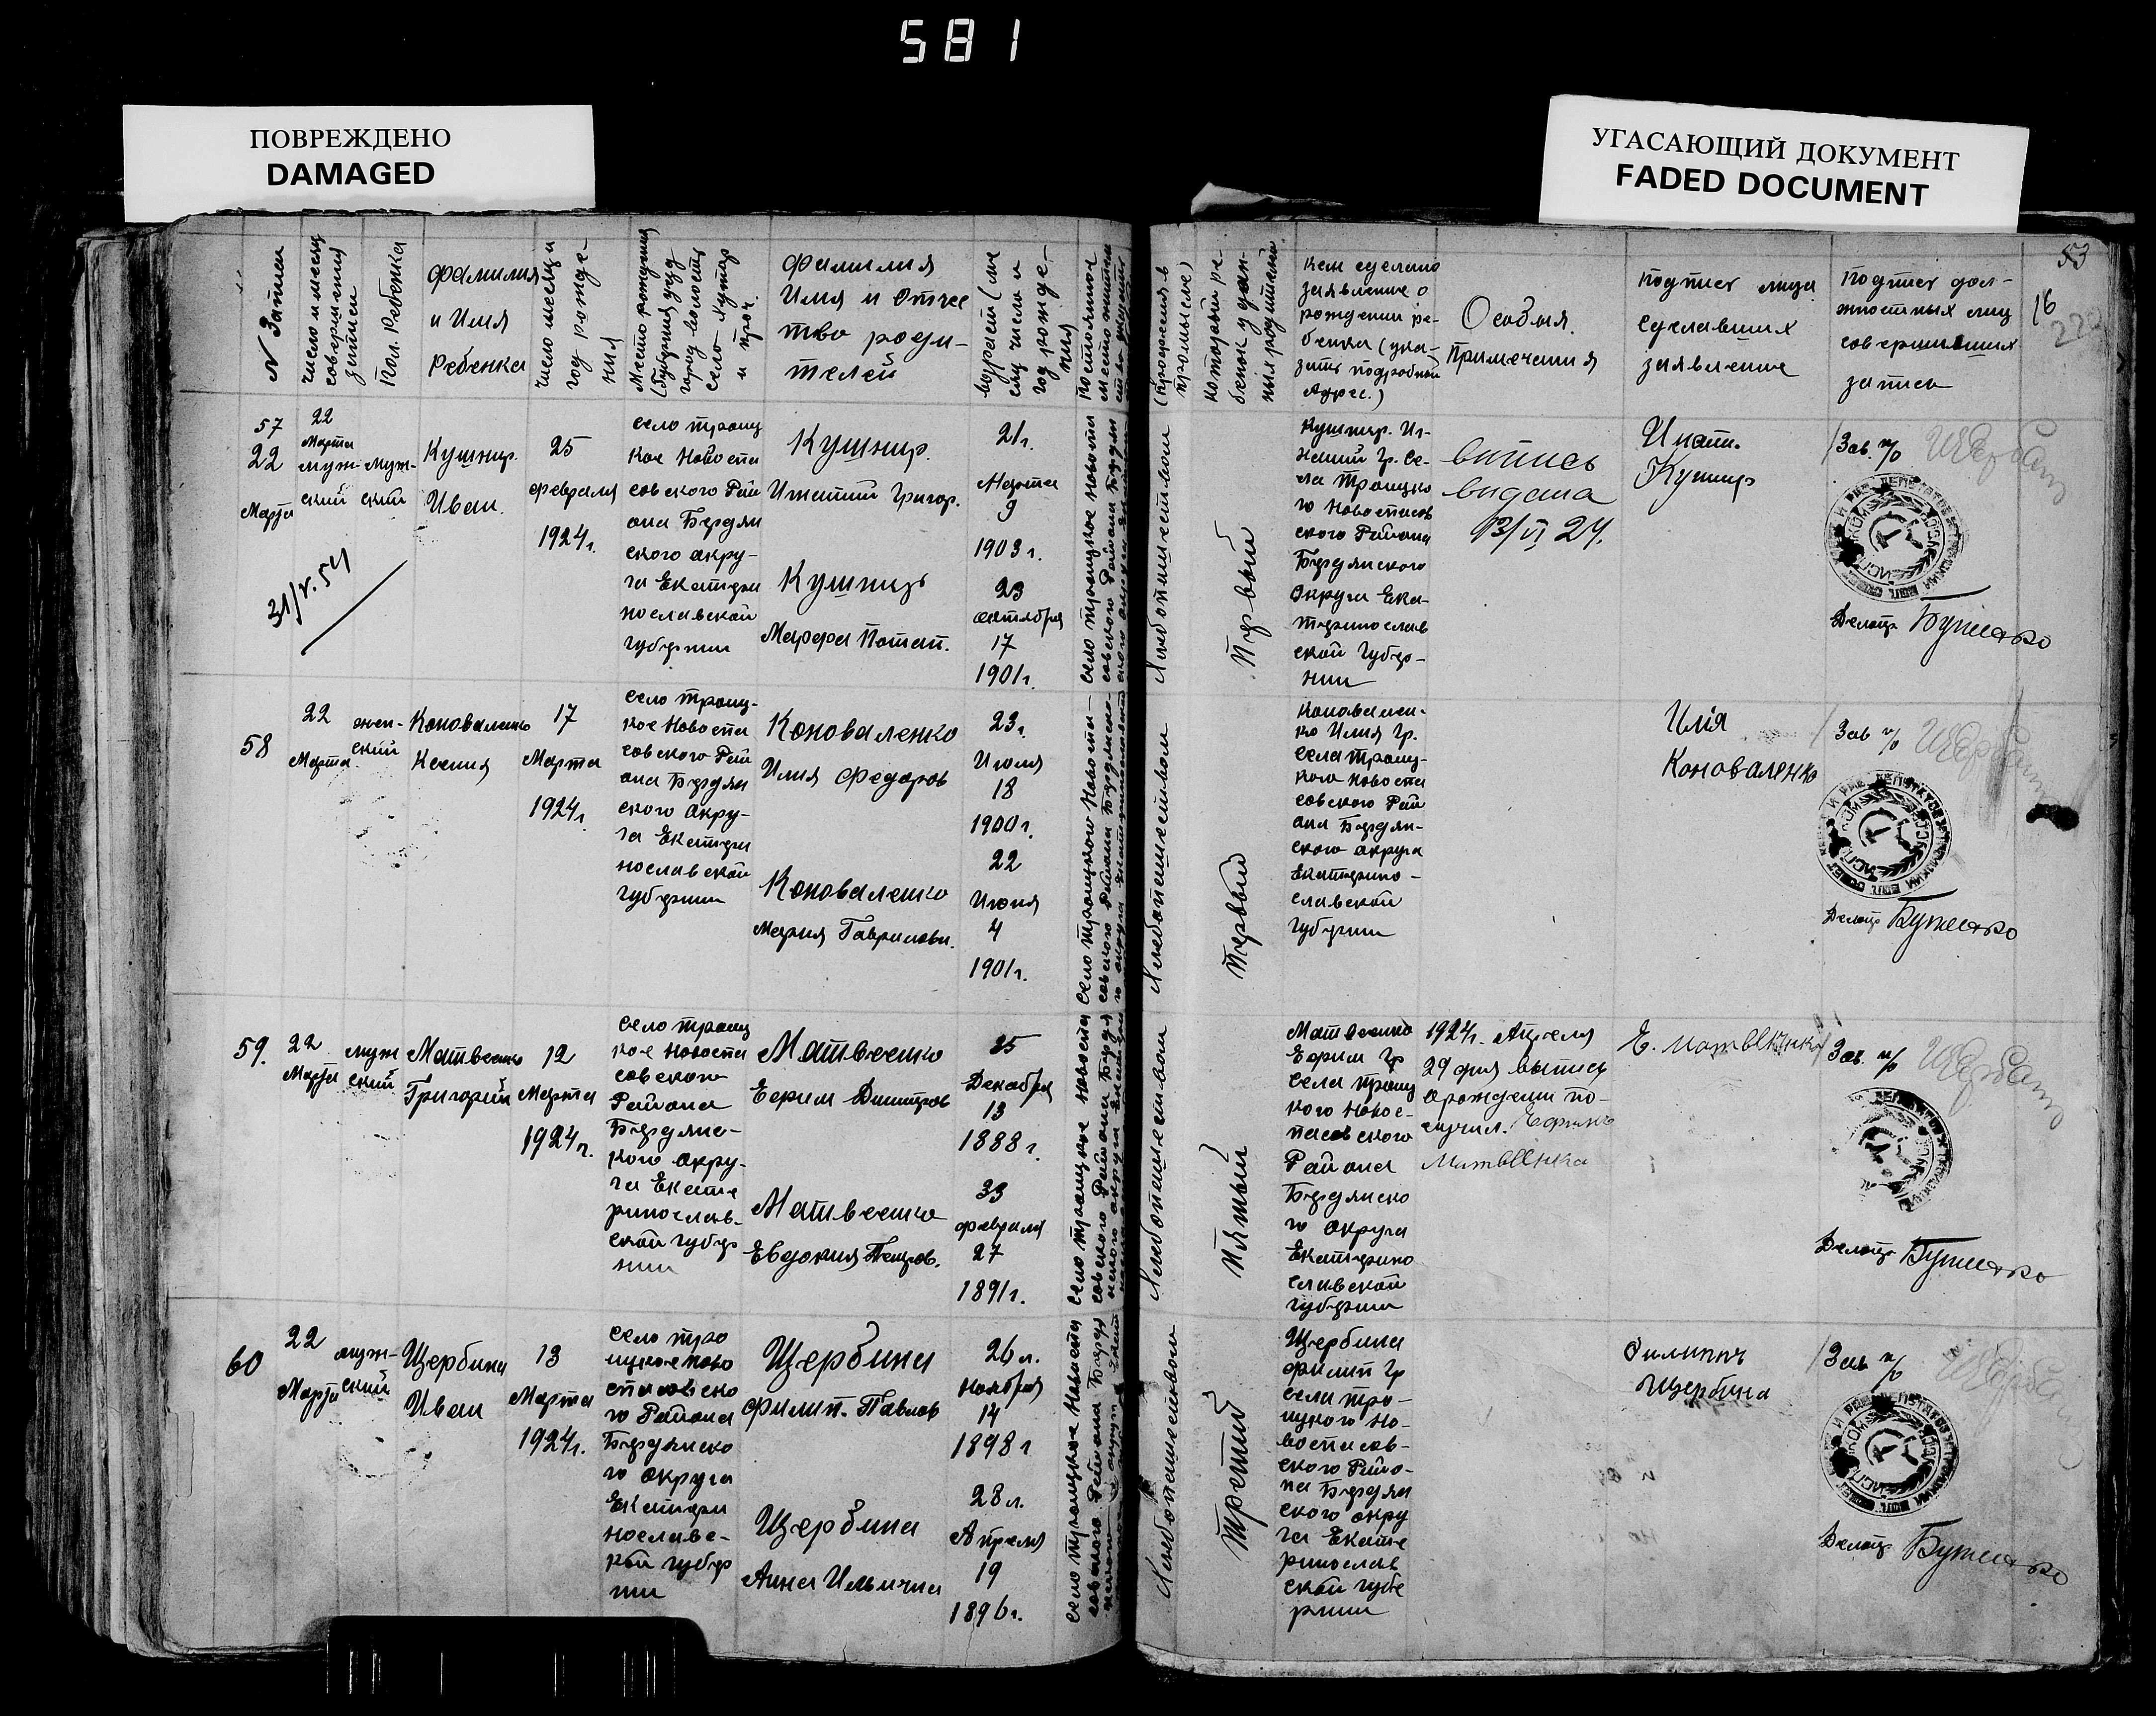 581
ПОВРЕЖДЕНО
DAMAGED
УГАСАЮЩИЙ ДОКУМЕНТ
FADED DOCUMENT
53
16
220
N Записи
число и месяц
совершения
записи
Пол. Ребенка
фамилия
и Имя
Ребенка
число месяц и
год рожде-
ния
Место рождения
(Губерния уезд
город волость
село хутор
и проч.
фамилия
Имя и Отчес
тво роди-
телей
возраст (ме
сяц число и
год рожде-
ния
Постоянное
место жительс
(профессия
промысле)
который ре
бенок у дан-
ных родителей
Кем сделано
заявление о
рождении ре-
бенка (ука-
зать подробный
Адрес.)
Особыя.
Примечания
Подпись лица
сделавших
заявление
Подпись дол-
жностных лиц
совершивших
запись
57
22
Марта
22
Марта
муж-
ский
муж-
ский
Кушнир.
Иван.
25
февраля
1924г.
село троиц
кое Новоспа
совского Рай
она Бердян
ского окру-
га Екатери
нославской
губернии
Кушнир.
Игнатий Григор.
21г.
Марта
9
1903г.
Кушнир
Марфа Потап.
23
октября
17
1901г.
31/V.54
село троицкое Новоспа
совского Района Бердян
Хлебопашеством
Первый
Кушнир. Иг-
натий Гр. Се-
ла Троицко
го Новоспасов
ского Района
Бердянского
Округа Ека-
теринослав
ской Губер-
нии
выпись
видана
13/VI 24.
Игнат.
Кушнир
Зав. п/о Щербань
Делопр Бутенко
58
22
Марта
жен-
ский
Коноваленко
Ксения
17
Марта
1924г.
село троиц-
кое Новоспа
совского Рай
она Бердян
ского Окру-
га Екатери
нославской
губернии
Коноваленко
Илия Федоров
23г.
Июля
18
1900г.
Коноваленко
Мария Гавриловн.
22
Июня
4
1901г.
село троицкого Новоспа-
совского Района Бердянско-
Хлебопашеством
Первый
Коновален-
ко Илия Гр.
села троиц-
кого Новоспа
совского Рай
она Бердян-
ского округа
Екатерино-
славской
губернии
Илія
Коноваленко
Зав п/о Щербань
Делопр Бутенко
59.
22
Марта
муж
ский
Матвеенко
Григорий
12
Марта
1924г.
село троиц
кое Новоспа
совского
Района
Бердянс-
кого окру-
га Екате
ринослав-
ской губер
нии
Матвеенко
Ефрем Димитров
35
Декабря
13
1888г.
Матвеенко
Евдокия Петров.
33
февраля
27
1891г.
село троицкое Новоспа
совского Района Бердя
Хлебопашеством
Пятый
Матвеенко
Ефрем Гр
села троиц
кого Новос-
пасовского
Района
Бердянско
го округа
Екатерино
славской
губернии
1924г. Апреля
29 дня выпись
о рождении по-
лучил. Ефримъ
Матвеенка
Е. Матвеенко
Зав. п/о Щербань
Делопр Бутенко
60
22
Марта
муж-
ский
Щербина
Иван
13
Марта
1924г.
село трo
ицкое Ново
спасовско
го Района
Бердянско
го округа
Екатери
нославс-
кой губер
нии
Щербина
Филип. Павлов
26 л.
Ноября
14
1898г
Щербина
Анна Ильична
28 л.
Апреля
19
1896г.
село троицкое Новоспа
совского Района Бердя
Хлебопашеством
Третий
Щербина
Филип Гр
села тро-
ицкого Но-
воспасов-
ского Райо-
на Бердян
ского окру
га Екате
ринослав
ской губе
рнии
Филиппъ
Щербина
Зав п/о Щербань
Делопр Бутенко